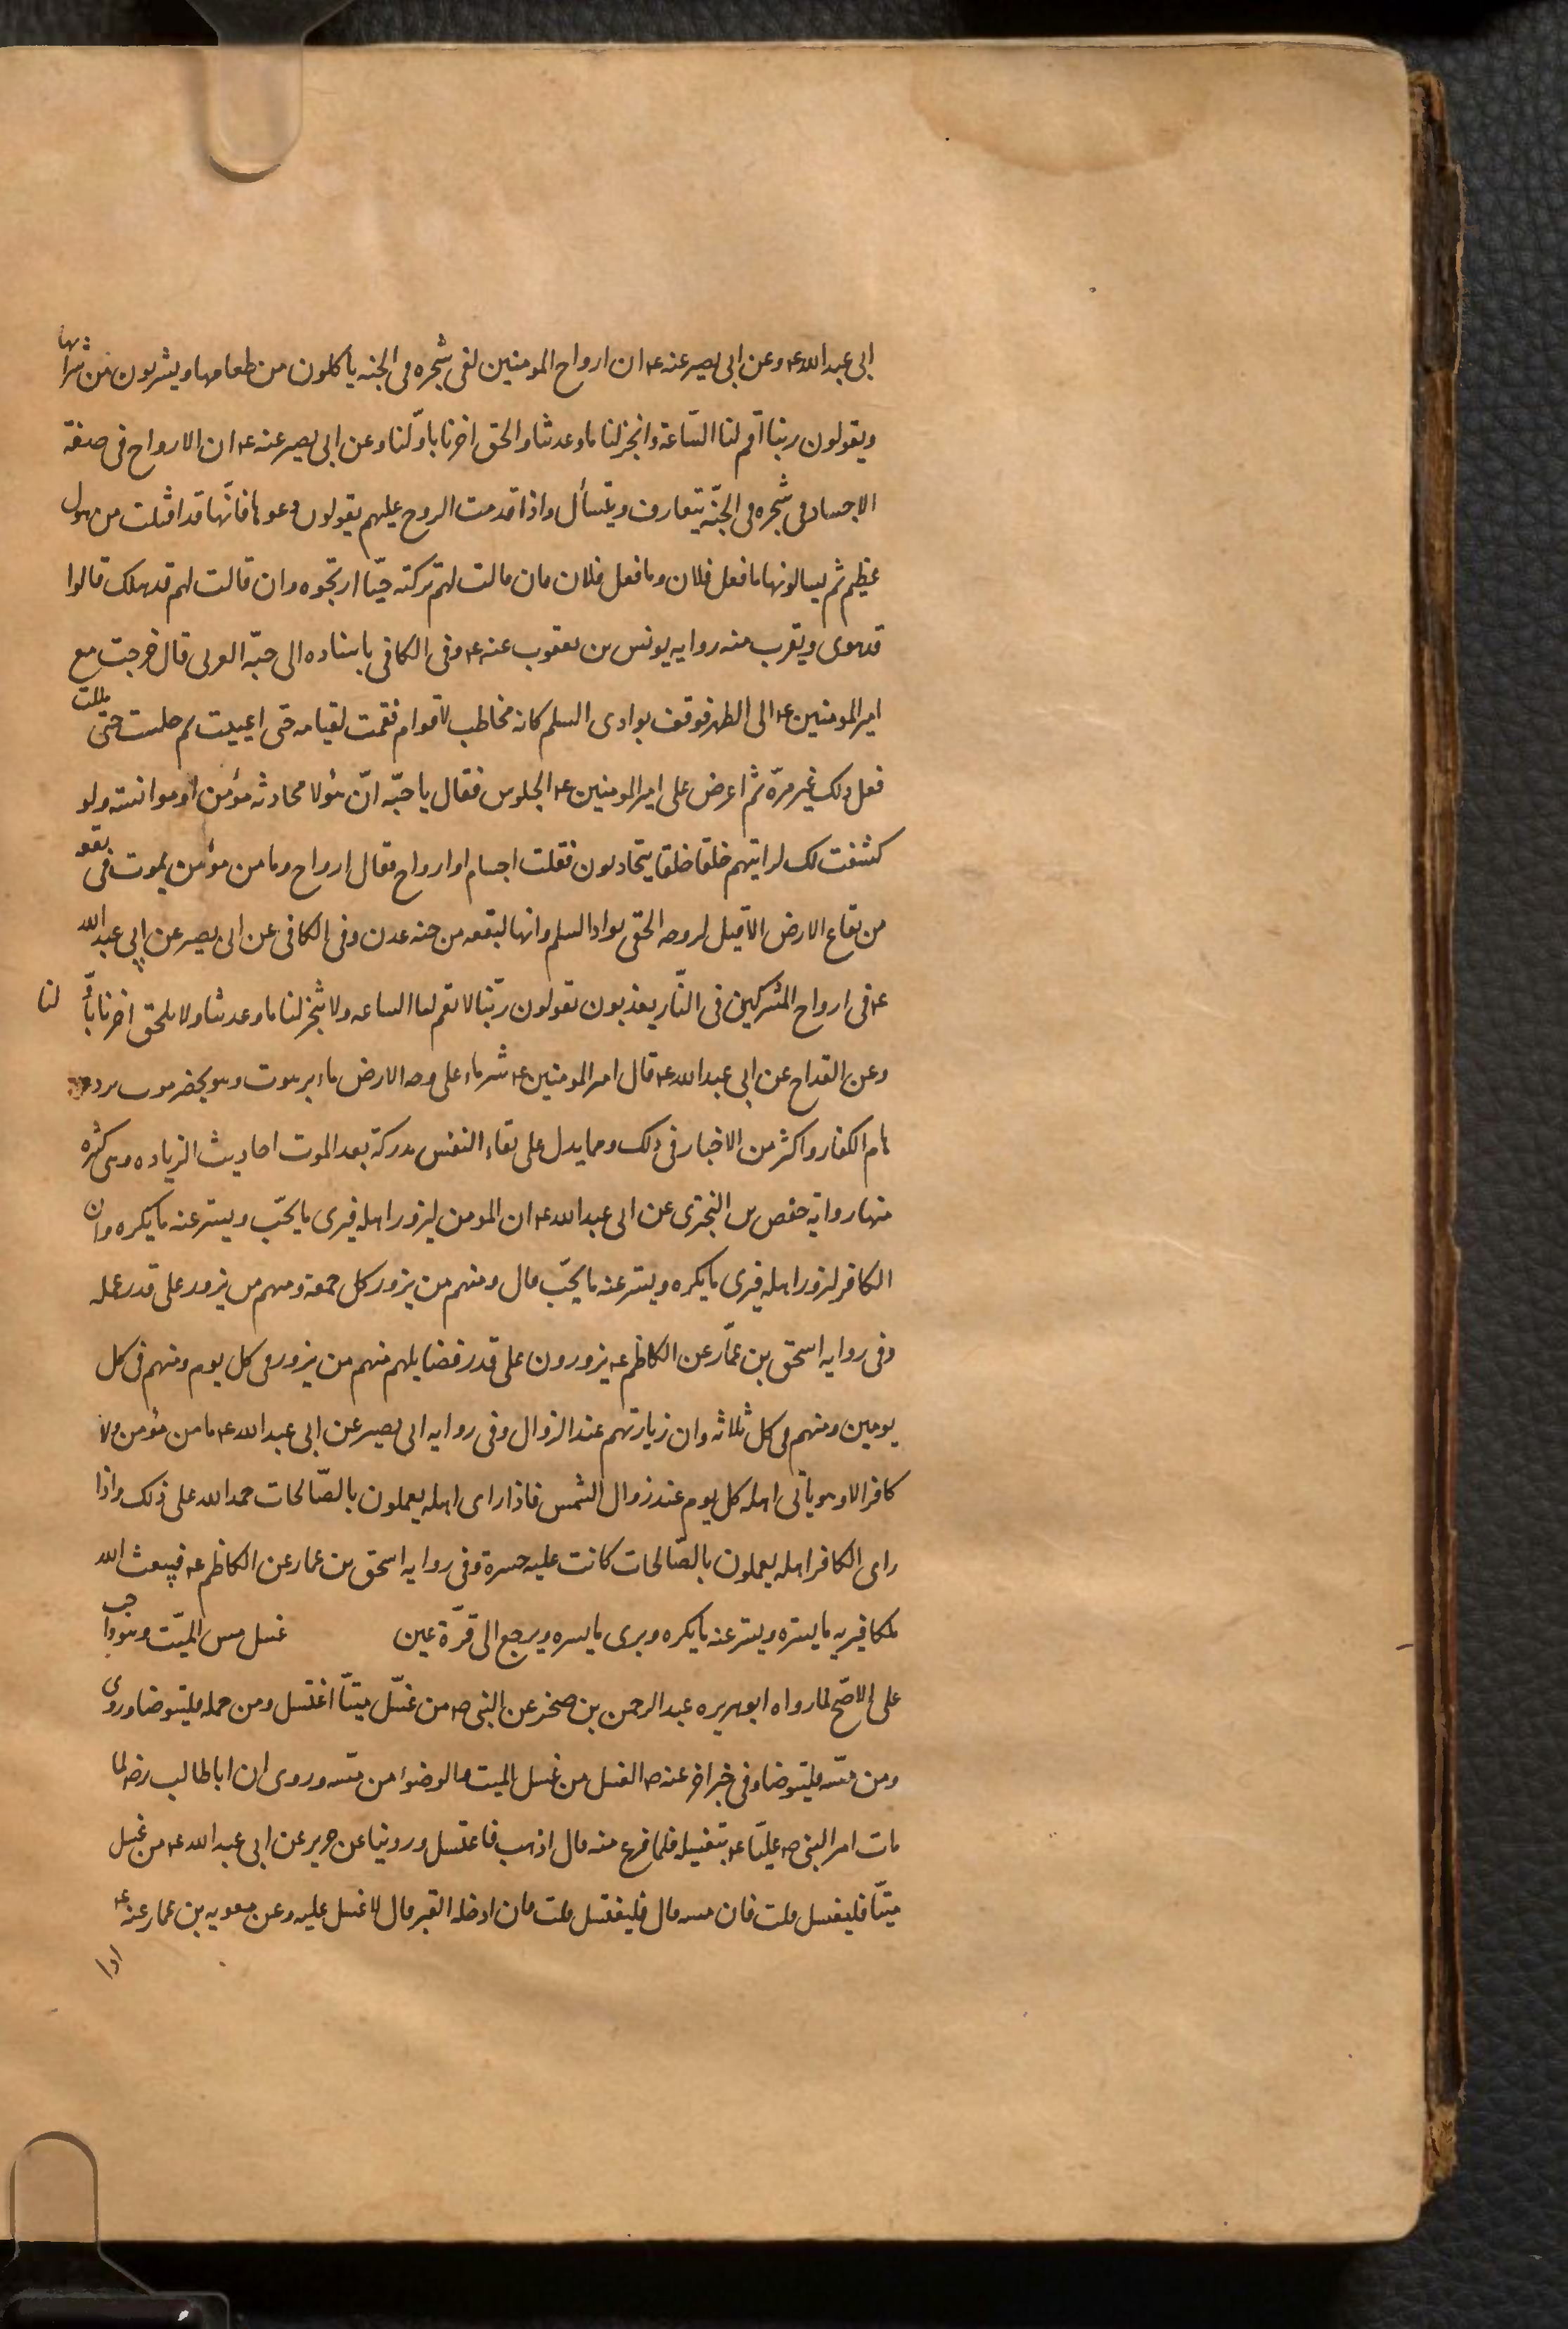 ابى عبد الله ع وعن ابى بصير عنه ع ان ارواح المومنين لفى شجره فى الجنه يأكلون من طعامها ويشربون من شرابها
ويقولون ربنا اقم لنا السّاعة وانجز لنا ما وعدتنا والحق اخرنا باوّلنا وعن ابى بصير عنه ع ان الارواح فى صفة
الاجساد فى شجره فى الجنّه يتعارف ويتسأل واذا قدمت الروح عليهم يقولون دعوها فانّها قد افلتت من هول
عظيم ثم يسالونها ما فعل فلان وما فعل فلان فان قالت لهم تركته حيّا ارتجوه وان قالت لهم قد هلك قالوا
قد هوى ويقرب منه روايه يونس بن يعقوب عنه ع وفى الكافى باسناده الى حبّه العرنى قال خرجت مع
امير المومنين ع الى الظهر فوقف بوادى السلم كانه مخاطب لاقوام فقمت لقيامه حتى اعييت ثم جلست حتى مللت
فعل ذلك غير مرّه ثم اعرض على امير المومنين ع الجلوس فقال يا حبّه انّ هؤلا محادثه مؤمن او موانسته ولو
كشفت لك لرايتهم حلقا حلقا يتحادثون فقلت اجسام او ارواح فقال ارواح وما من مؤمن يموت فى بقعه
من بقاع الارض الا قيل لروحه الحقى بواد السلم وانها لبقعه من جنه عدن وفى الكافى عن ابى بصير عن ابى عبد الله
ع فى ارواح المشركين فى النّار يعذبون يقولون ربّنا لا تقم لنا الساعه ولا تنجز لنا ما وعدتنا ولا تلحق اخرنا باوّلنا
وعن القداح عن ابى عبد الله ع قال امير المومنين ع شر ماء على وجه الارض ماء برهوت وهو بحضرموت يرده
هام الكفار واكثر من الاخبار فى ذلك ومما يدل على بقاء النفس مدركة بعد الموت احاديث الزياده وهى كثيره
منها رواية حفص بن البخترى عن ابى عبد الله ع ان المومن ليزور اهله فيرى ما يحبّ ويستر عنه ما يكره وان
الكافر لزور اهله فيرى ما يكره ويستر عنه ما يحبّ قال ومنهم من يزور كل جمعة ومنهم من يزور على قدر عمله
وفى روايه اسحق بن عمّار عن الكاظم ع يزورون على قدر فضايلهم منهم من يزور فى كل يوم ومنهم فى كل
يومين ومنهم فى كل ثلاثه وان زيارتهم عند الزوال وفى روايه ابى بصير عن ابى عبد الله ع ما من مؤمن ولا
كافر الا وهو ياتى اهله كل يوم عند زوال الشمس فاذا راى اهله يعملون بالصّالحات حمد الله على ذلك واذا
راى الكافر اهله يعملون بالصّالحات كانت عليه حسرة وفى روايه اسحق بن عمار عن الكاظم ع فيبعث الله
ملكا فيريه ما يسّره ويستر عنه ما يكره ويرى ما يسره ويرجع الى قرّة عين غسل مس الميّت وهو واجب
على الاصّح لما رواه ابو هريره عبد الرحمن بن صخر عن النبى ص من غسّل ميتّا اغتسل ومن حمله فليتوضا وروى
ومن مسّه فليتوضا وفى خبر اخر عنه ص الغسل من غسل الميت والوضؤ من مسّه وروى ان ابا طالب رضه لما
مات امر النبى ص عليّا ع بتغسيله فلما فرغ منه قال اذهب فاغتسل وروينا عن حريز عن ابى عبد الله ع من غسل
ميتّا فليغسل قلت فان مسه قال فليغتسل قلت فان ادخله القبر قال لا غسل عليه وعن معويه بن عمار عنه ع
اذا